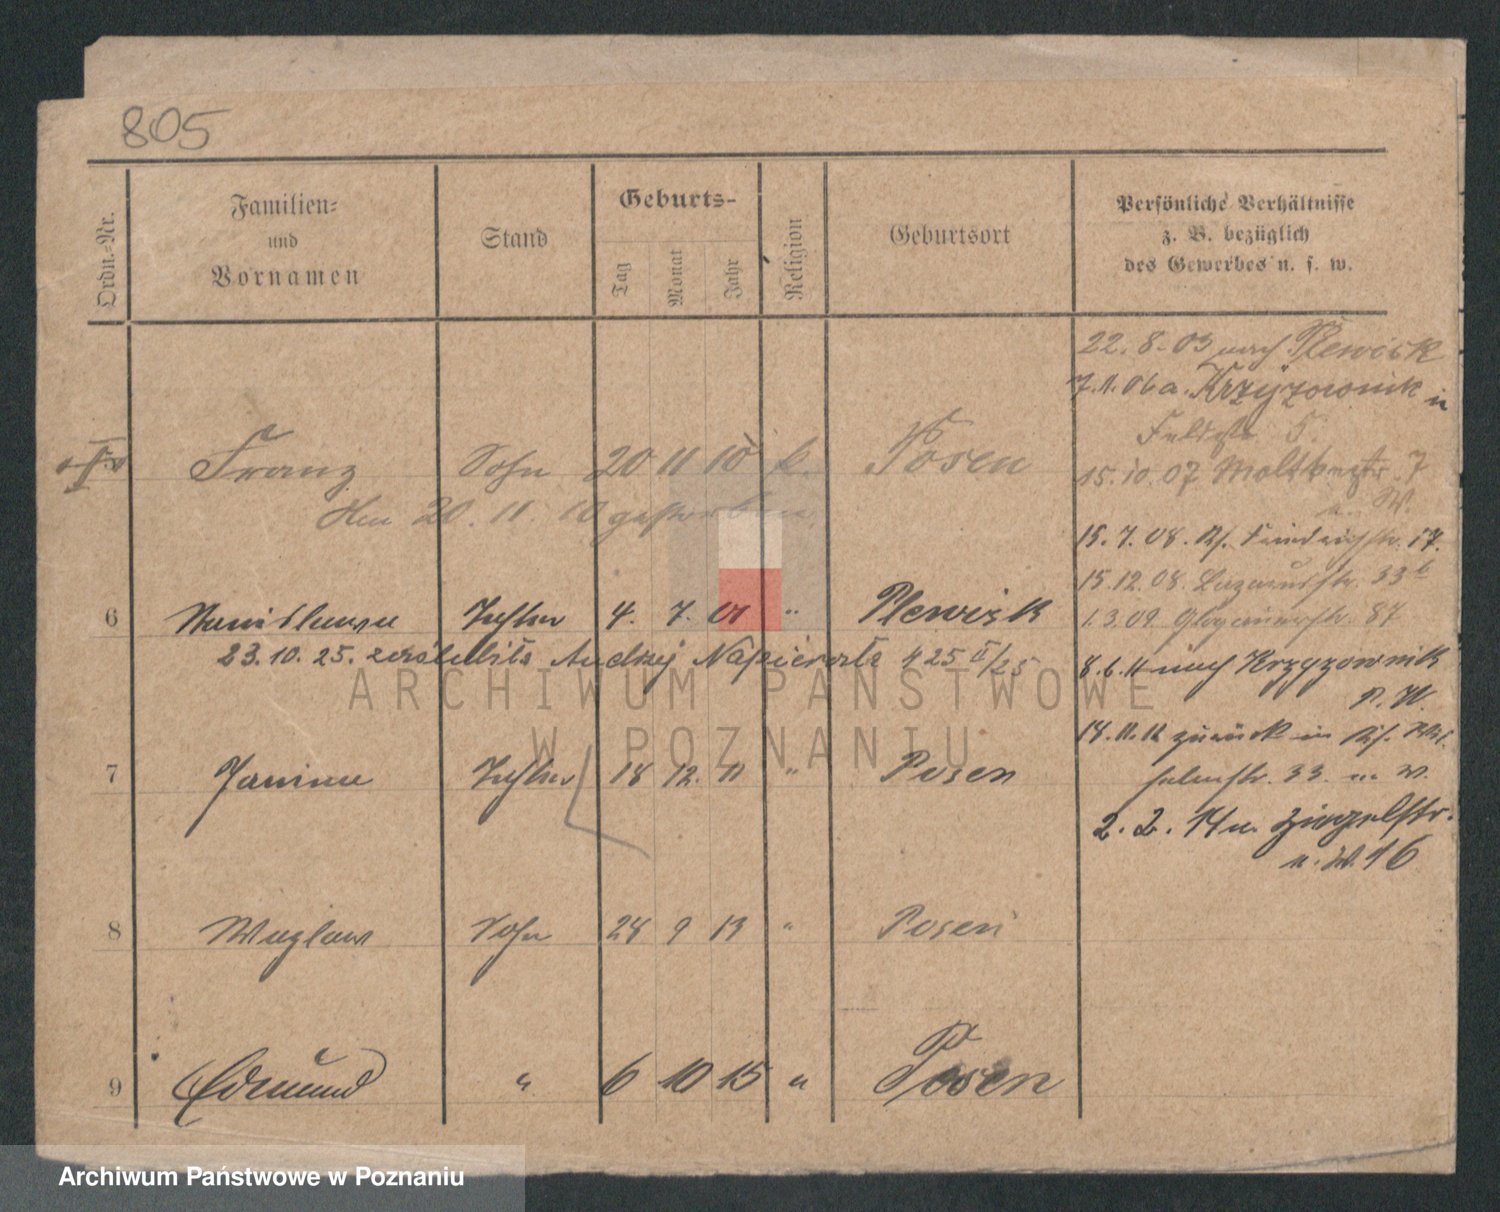 805
Ordn.-Nr.
Familien-
und
Vornamen
Stand
Geburts-
Tag
Monat
Jahr
Religion
Geburtsort
Persönliche Verhältnisse
z. B. bezüglich
des Gewerbes u. s. w.
22. 8. 03 nach Plewisk
7.11.06 a. Krzyżownik in
5.
Franz Sohn 20 11 10 k. Posen
15.10.07 Moltkestr. 7
u. W.
20. 11. 10 gestorben
15. 7. 08. Friedrichstr. 17.
15.12.08. Lazarusstr. 33 b
6 Stanislawa Tochter 4. 7. 01 " Plewisk
1.3.09. Glogauerstr. 87
23.10.25. zaślubiła Andrzej Napierała 425 II/25
8.6.11 nach Krzyżownik
P. W.
ARCHIWUM PAŃSTWOWE
W POZNANIU
18.11.12 zurück in
7 Janina Tochter 18 12. 11 " Posen
33. u. W.
2. 2. 14 u. Ziegelstr.
u. W. 16
8 Waclaw Sohn 28 9 13 " Posen
9 Edmund " 6 10 15 " Posen
Archiwum Państwowe w Poznaniu